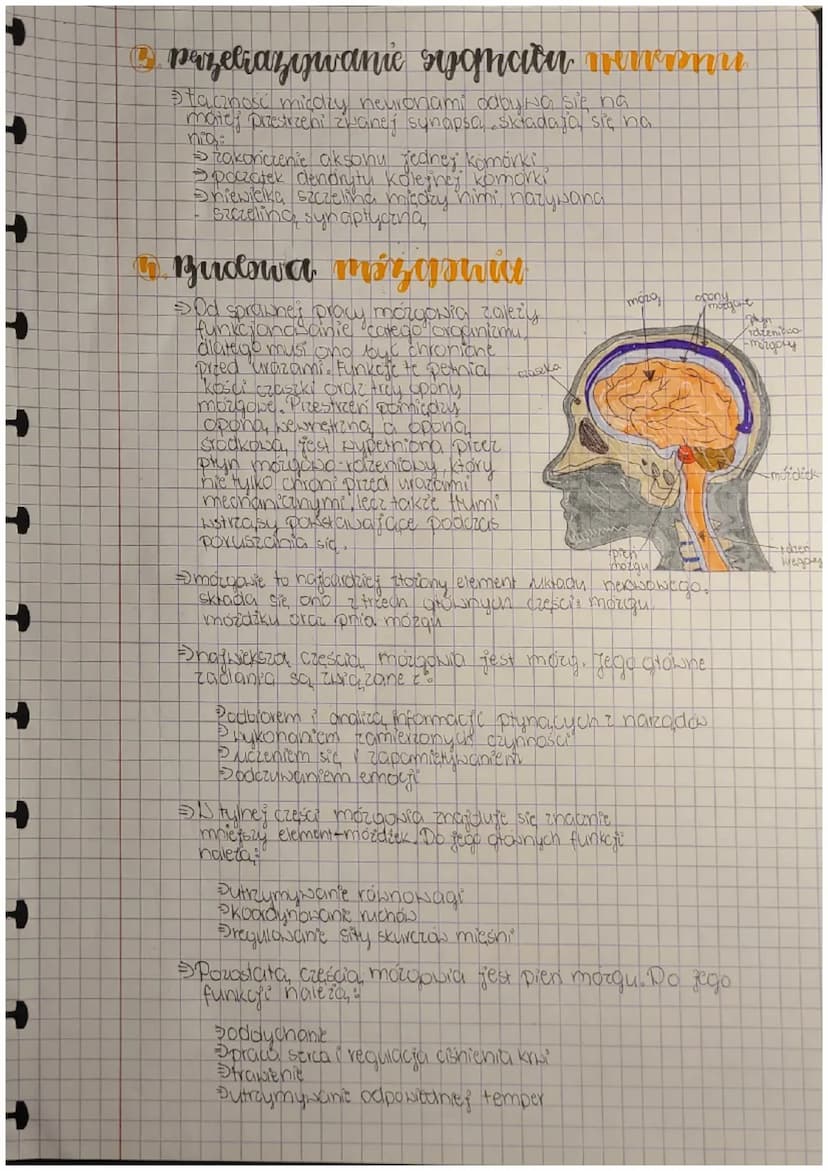 3. Przekazywanie sygnału neuronu
⇒ Łączność między neuronami odbywa się na
małej przestrzeni zwanej synapsą. Składają się na
nią:
⇒ zakończenie aksonu jednej komórki
⇒ początek dendrytu kolejnej komórki
⇒ niewielka szczelina między nimi, nazywana
- szczeliną synaptyczną
4. Budowa mózgowia
⇒ Od sprawnej pracy mózgowia zależy
funkcjonowanie całego organizmu,
dlatego musi ono być chronione
przed urazami. Funkcje te pełnią
kości czaszki oraz trzy opony
mózgowe. Przestrzeń pomiędzy
oponą wewnętrzną a oponą
środkową jest wypełniona przez
płyn mózgowo-rdzeniowy, który
nie tylko chroni przed urazami
mechanicznymi, lecz także tłumi
wstrząsy powstawające podczas
poruszania się.
mózg
opony
mózgowe
płyn
rdzeniowo
-mózgowy
czaszka
móżdżek
pień
mózgu
rdzeń
kręgowy
⇒ mózgowie to najbardziej złożony element układu nerwowego.
składa się ono z trzech głównych części: mózgu
móżdżku oraz pnia mózgu
⇒ największą częścią mózgowia jest mózg. Jego główne
zadania są związane z:
⇒ odbiorem i analizą informacji płynących z narządów
⇒ wykonaniem zamierzonych czynności
⇒ uczeniem się i zapamiętywaniem
⇒ odczuwaniem emocji
⇒ W tylnej części mózgowia znajduje się znacznie
mniejszy element-móżdżek. Do jego głównych funkcji
należą:
⇒ utrzymywanie równowagi
⇒ koordynowanie ruchów
⇒ regulowanie siły skurczów mięśni
⇒ Pozostałą częścią mózgowia jest pień mózgu. Do jego
funkcji należą:
⇒ oddychanie
⇒ praca serca i regulacja ciśnienia krwi
⇒ trawienie
⇒ utrzymywanie odpowiedniej temper